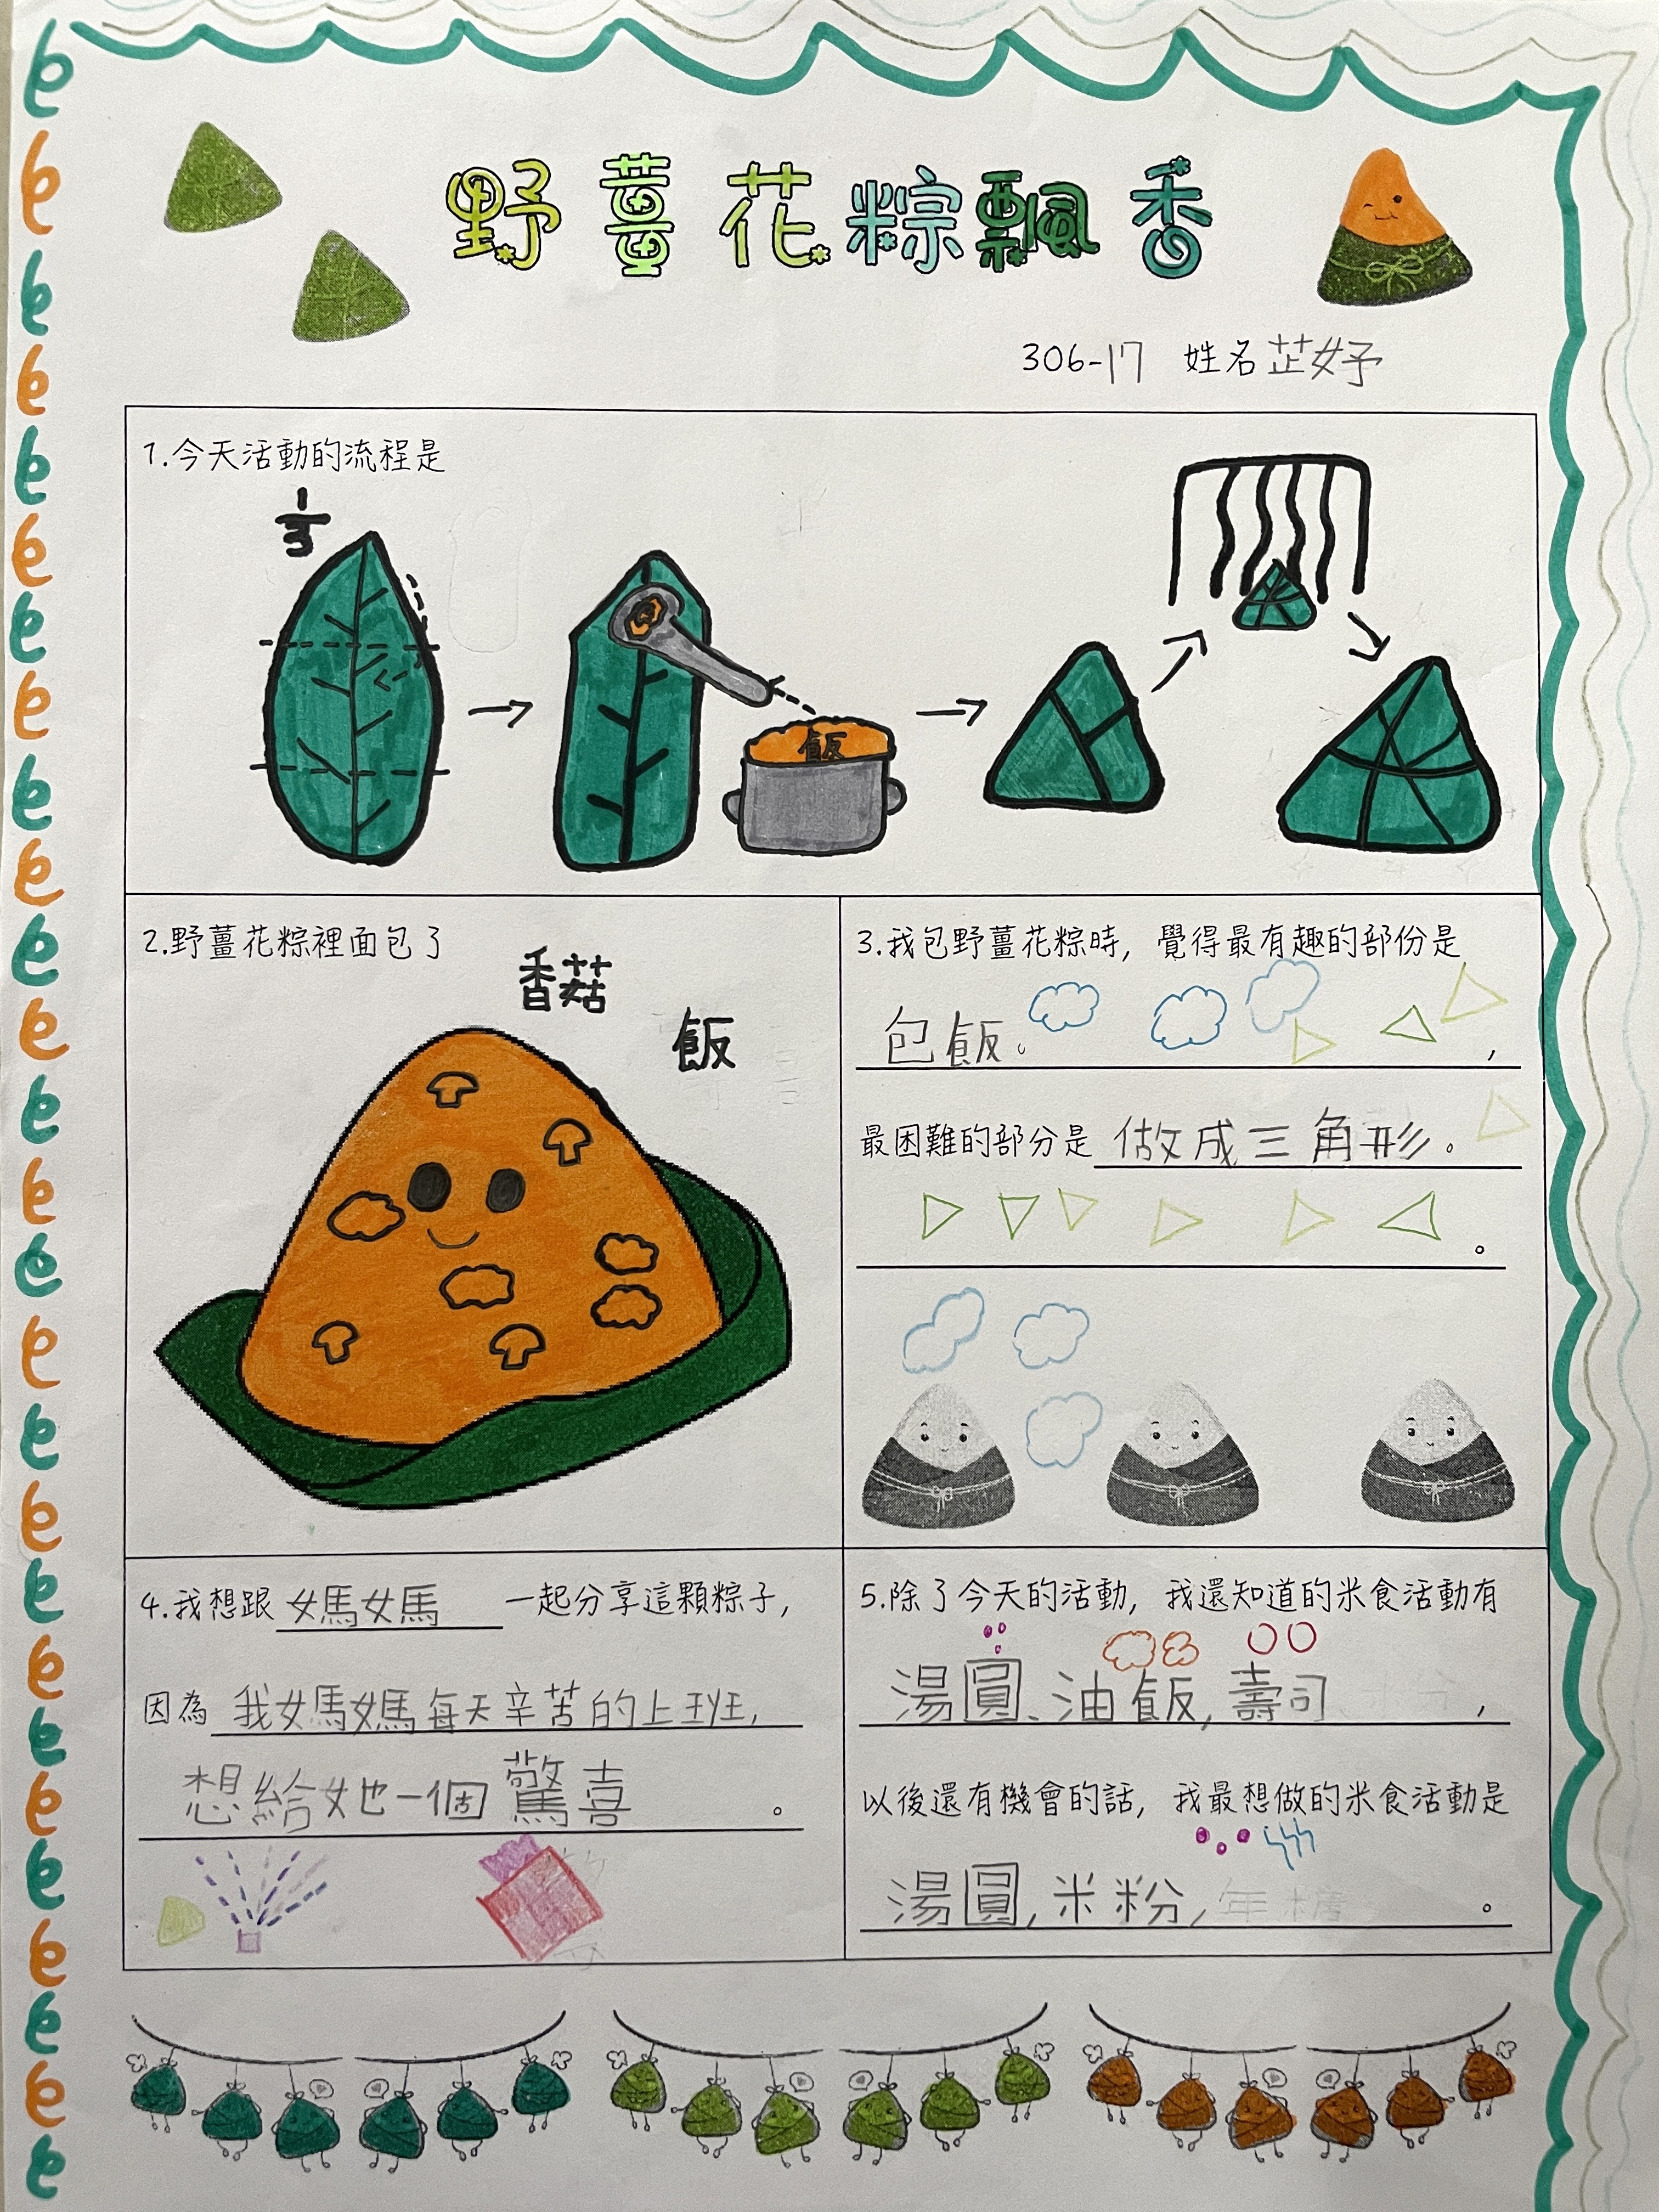 野薑花粽飄香
306-17 姓名芷妤
1.今天活動的流程是
1/3
飯
2.野薑花粽裡面包了
香菇
飯
3.我包野薑花粽時, 覺得最有趣的部份是
包飯。 ,
最困難的部分是做成三角形。
。
4.我想跟 媽媽 一起分享這顆粽子,
因為 我媽媽每天辛苦的上班,
想給她一個驚喜 。
5.除了今天的活動, 我還知道的米食活動有
湯圓、油飯, 壽司 ,
以後還有機會的話, 我最想做的米食活動是
湯圓, 米粉, 。